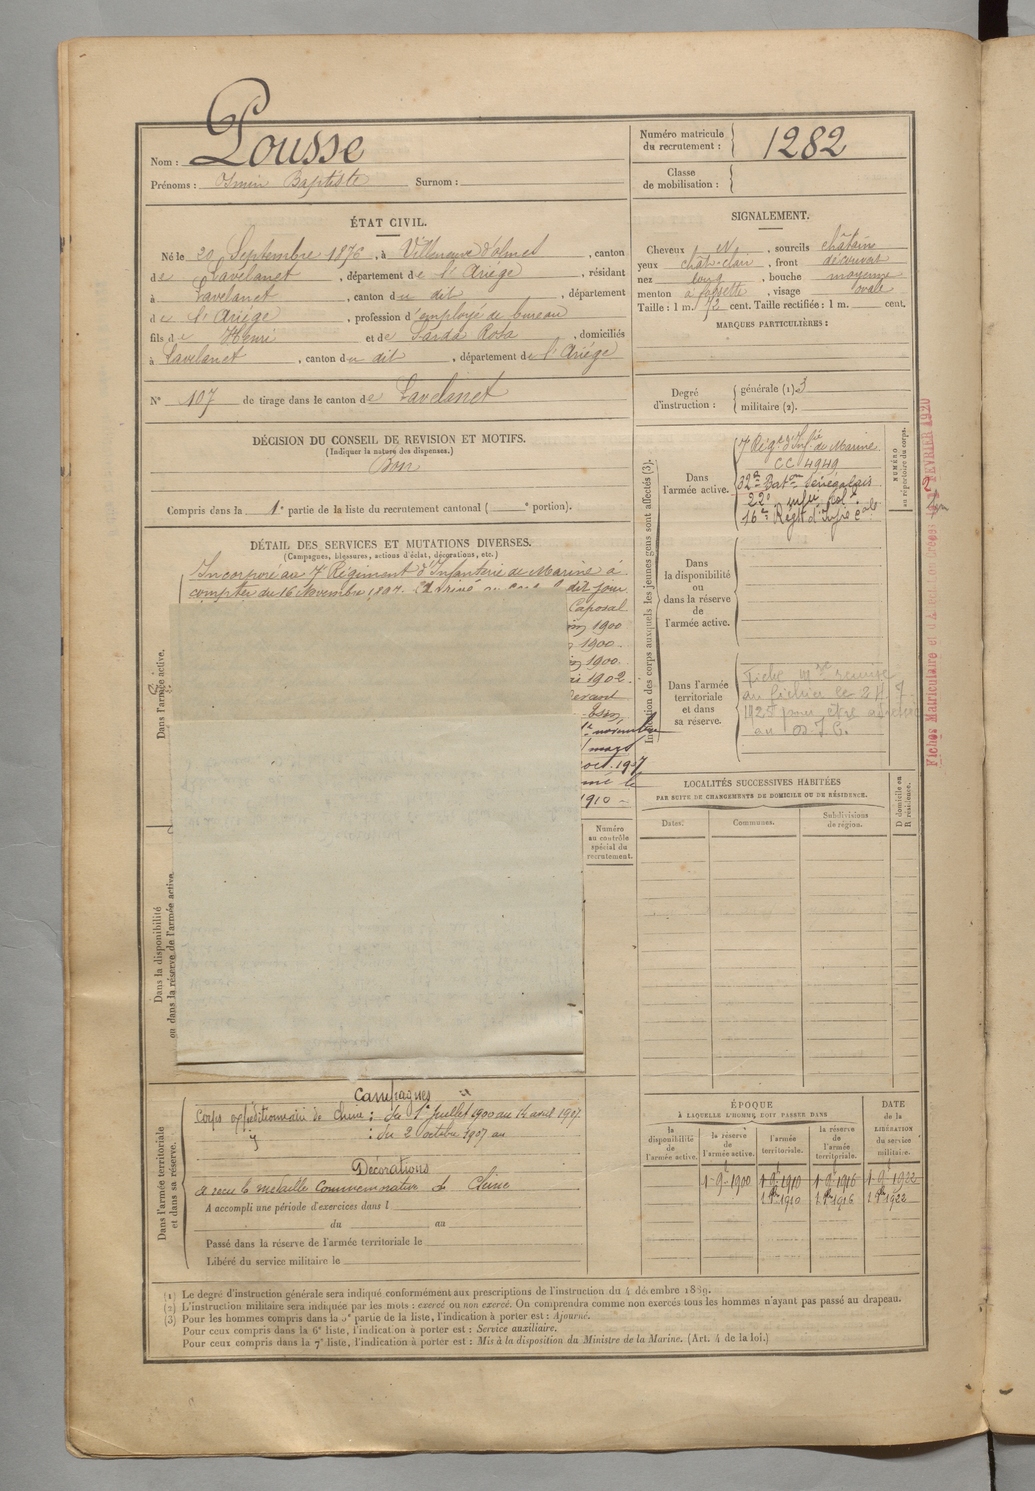 Nom : Pousse
Prénoms : Baptiste Surnom :
Numéro matricule du recrutement : 1282
Classe de mobilisation :
ÉTAT CIVIL.
Né le 20 Septembre 1876, à Villeneuve d'olmes, canton
de Lavelanet, département de l'Ariège, résidant
à Lavelanet, canton du dit, département
de l'Ariège, profession d'employé de bureau
fils de Henri et de Sarda Rosa, domiciliés
à Lavelanet, canton du dit, département de l'Ariège
N° 107 de tirage dans le canton de Lavelanet
SIGNALEMENT.
Cheveux N, sourcils châtains
yeux chât-clair, front découvert
nez long, bouche moyenne
menton à fossette, visage ovale
Taille : 1 m. 73 cent. Taille rectifiée : 1 m. cent.
MARQUES PARTICULIÈRES :
Degré d'instruction : générale (1) 3
militaire (2).
DÉCISION DU CONSEIL DE REVISION ET MOTIFS.
(Indiquer la nature des dispenses.)
Bon
Compris dans la 1e partie de la liste du recrutement cantonal ( e portion).
DÉTAIL DES SERVICES ET MUTATIONS DIVERSES.
(Campagnes, blessures, actions d'éclat, décorations, etc.)
Incorporé au 7e Régiment d'Infanterie de Marine à
compter du 16 Novembre 1897. dit jour
Caporal
1900
1900
1900
1902
novembre
mars
oct. 1907
le
1910
Dans l'armée active.
Dans la disponibilité ou dans la réserve de l'armée active.
Numéro au contrôle spécial du recrutement.
Indication des corps auxquels les jeunes gens sont affectés (3).
NUMÉRO au répertoire du corps.
Dans l'armée active.
7e Rég. d'Inf. de Marine
CC 4949
2e Baton Sénégalais
22e infie col.
16e Régt d'Infie cale
Dans la disponibilité ou dans la réserve de l'armée active.
Dans l'armée territoriale et dans sa réserve.
Fiche mle remise
au fichier le
1925 pour être
au
LOCALITÉS SUCCESSIVES HABITÉES
PAR SUITE DE CHANGEMENTS DE DOMICILE OU DE RÉSIDENCE.
Dates. Communes. Subdivisions de région.
D domicile ou R résidence.
Dans l'armée territoriale et dans sa réserve.
Campagnes
Corps expéditionnaire de Chine : du 1er Juillet 1900 au 14 avril 1907
: du 2 octobre 1907 au
Décorations
a reçu la médaille Commémorative de Chine
A accompli une période d'exercices dans l
du au
Passé dans la réserve de l'armée territoriale le
Libéré du service militaire le
ÉPOQUE
À LAQUELLE L'HOMME DOIT PASSER DANS
DATE de la LIBÉRATION du service militaire.
la disponibilité de l'armée active. la réserve de l'armée active. l'armée territoriale. la réserve de l'armée territoriale.
1-9-1900 1-9-1910 1-9-1916 1-9-1922
1910 1916 1922
(1) Le degré d'instruction générale sera indiqué conformément aux prescriptions de l'instruction du 4 décembre 1889.
(2) L'instruction militaire sera indiquée par les mots : exercé ou non exercé. On comprendra comme non exercés tous les hommes n'ayant pas passé au drapeau.
(3) Pour les hommes compris dans la 5e partie de la liste, l'indication à porter est : Ajourné.
Pour ceux compris dans la 6e liste, l'indication à porter est : Service auxiliaire.
Pour ceux compris dans la 7e liste, l'indication à porter est : Mis à la disposition du Ministre de la Marine. (Art. 4 de la loi.)